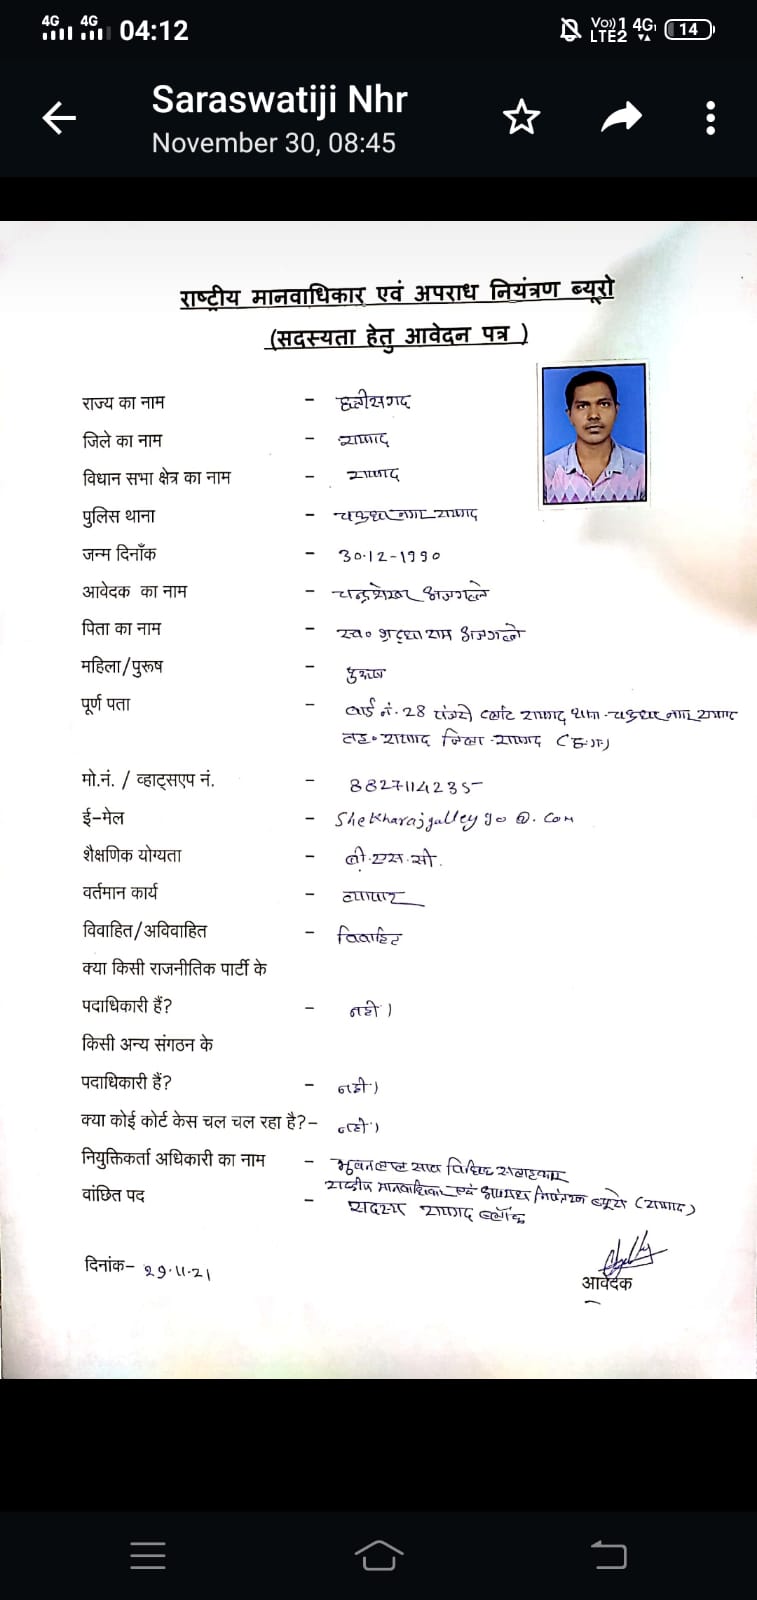 4G 4G 04:12 Vo)) 1 4G 14
LTE2
Saraswatiji Nhr
November 30, 08:45
राष्ट्रीय मानवाधिकार एवं अपराध नियंत्रण ब्यूरो
(सदस्यता हेतु आवेदन पत्र )
राज्य का नाम - छत्तीसगढ़
जिले का नाम - रायगढ़
विधान सभा क्षेत्र का नाम - रायगढ़
पुलिस थाना - चक्रधर नगर रायगढ़
जन्म दिनाँक - 30.12-1990
आवेदक का नाम - चन्द्रशेखर अजगल्ले
पिता का नाम - स्व० राम अजगल्ले
महिला/पुरूष - पुरूष
पूर्ण पता - वार्ड नं. 28 रायगढ़ थाना - चक्रधर नगर रायगढ़
तह० रायगढ़ जिला - रायगढ़ (छ.ग.)
मो.नं. / व्हाट्सएप नं. - 8827114235
ई-मेल - Shekharajgalley90@.com
शैक्षणिक योग्यता - बी.एस.सी.
वर्तमान कार्य - व्यापार
विवाहित/अविवाहित - विवाहित
क्या किसी राजनीतिक पार्टी के
पदाधिकारी हैं? - नही।
किसी अन्य संगठन के
पदाधिकारी हैं? - नही।
क्या कोई कोर्ट केस चल चल रहा है?- नही।
नियुक्तिकर्ता अधिकारी का नाम - भुवनलाल साव सलाहकार
राष्ट्रीय मानवाधिकार एवं अपराध नियंत्रण ब्यूरो (रायगढ़)
वांछित पद - सदस्य रायगढ़ ब्लॉक
दिनांक- 29.11.21
आवेदक